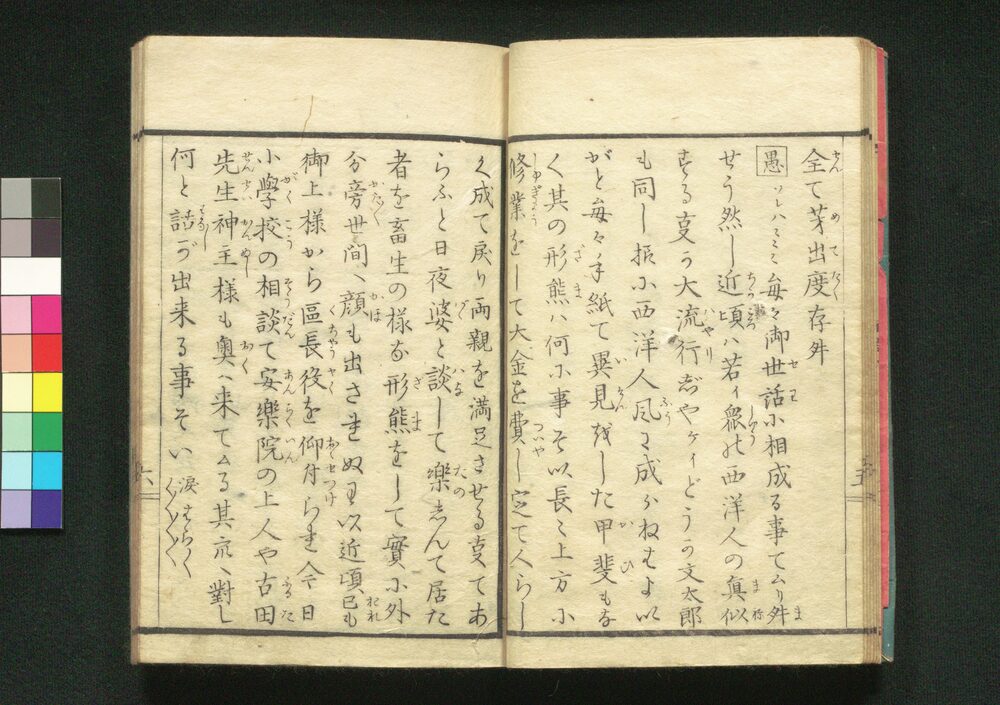 全て芽出度存舛
愚 ソレハミミミ毎々御世話小相成る事てムり舛ま
せう然し近頃ハ若イ衆の西洋人の真似
をする事う大流行ぢやケイどうか文太郎
も同し振小西洋人風に成らねはよい
がと毎々手紙て異見をした甲斐もな
く其の形熊ハ何小事そい長く上方小
修業をして大金を費し定て人らし
く成て戻り両親を満足させる事てあ
らふと日夜婆と談して樂しんて居た
者を畜生の様な形熊をして實小外
分旁世間へ顔も出さきぬに以近頃己も
御上様から區長役を仰付られ今日
小學校の相談て安樂院の上人や古田
先生神主様も奥へ来てムる其衆へ對し
何と話が出来る事そい 涙はらく